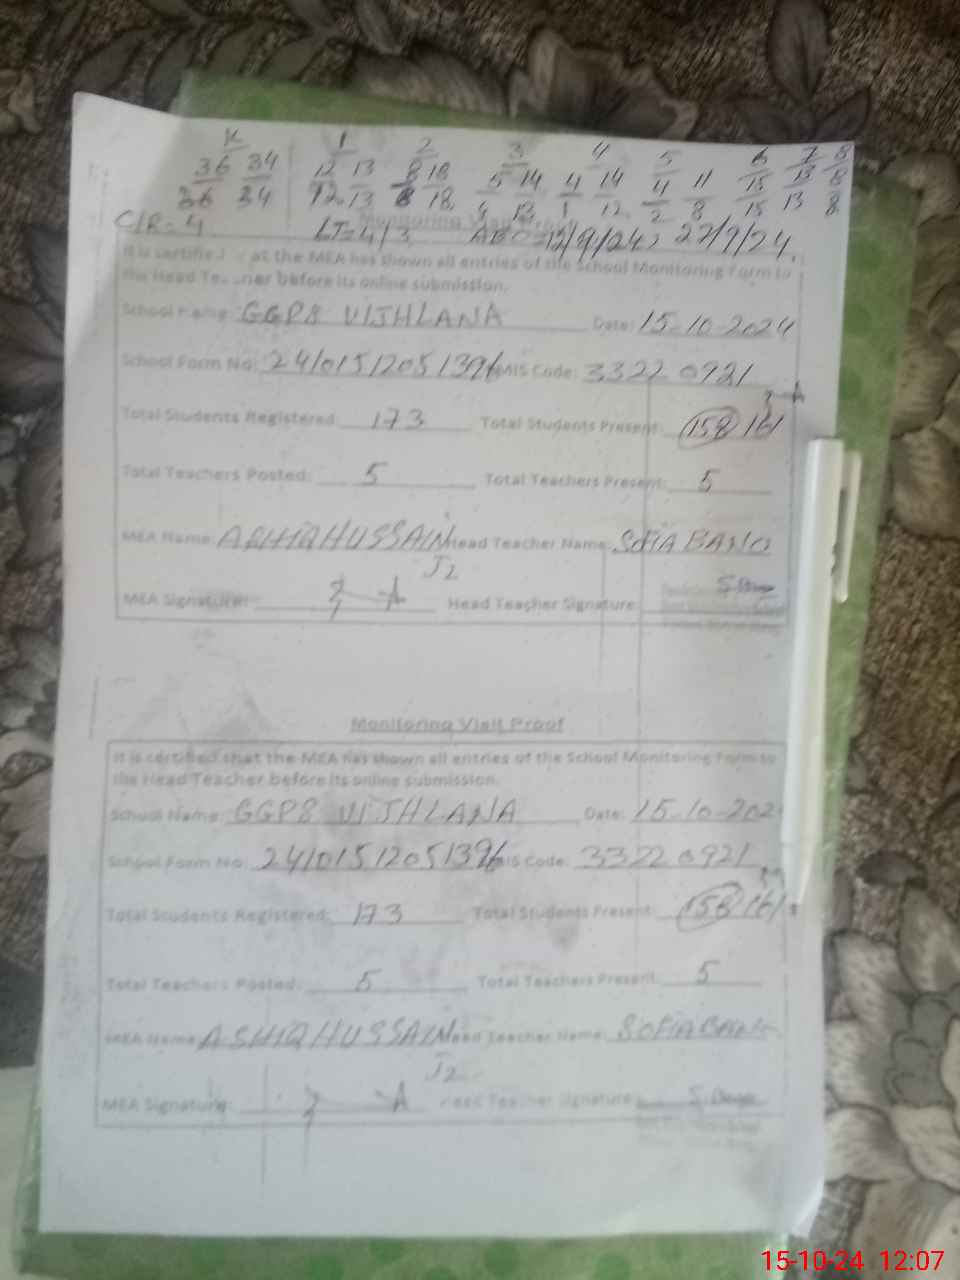 K 1 2 3 4 5 6 7 8
36 34 12 13 8 18 5 14 4 14 4 11 15 13 8
36 34 12 13 8 18 4 13 1 12 2 8 15 13 8
C/R = 4 LT=4/3 12/9/24, 27/9/24
It is certified that the MEA has shown all entries of the School Monitoring Form to
the Head Teacher before its online submission.
School Name: GGPS VIJHLANA Date: 15-10-2024
School Form No: 24101512051396 EMIS Code: 33220921
Total Students Registered: 173 Total Students Present: 158 161
Total Teachers Posted: 5 Total Teachers Present: 5
MEA Name: ASHIQ HUSSAIN Head Teacher Name: SOFIA BANO
J2
MEA Signature: Head Teacher Signature:
Monitoring Visit Proof
It is certified that the MEA has shown all entries of the School Monitoring Form to
the Head Teacher before its online submission.
School Name: GGPS VIJHLANA Date: 15-10-202
School Form No: 24101512051396 EMIS Code: 33220921
Total Students Registered: 173 Total Students Present: 158 161
Total Teachers Posted: 5 Total Teachers Present: 5
MEA Name: ASHIQ HUSSAIN Head Teacher Name: SOFIA BANO
J2
MEA Signature: Head Teacher Signature:
15-10-24 12:07